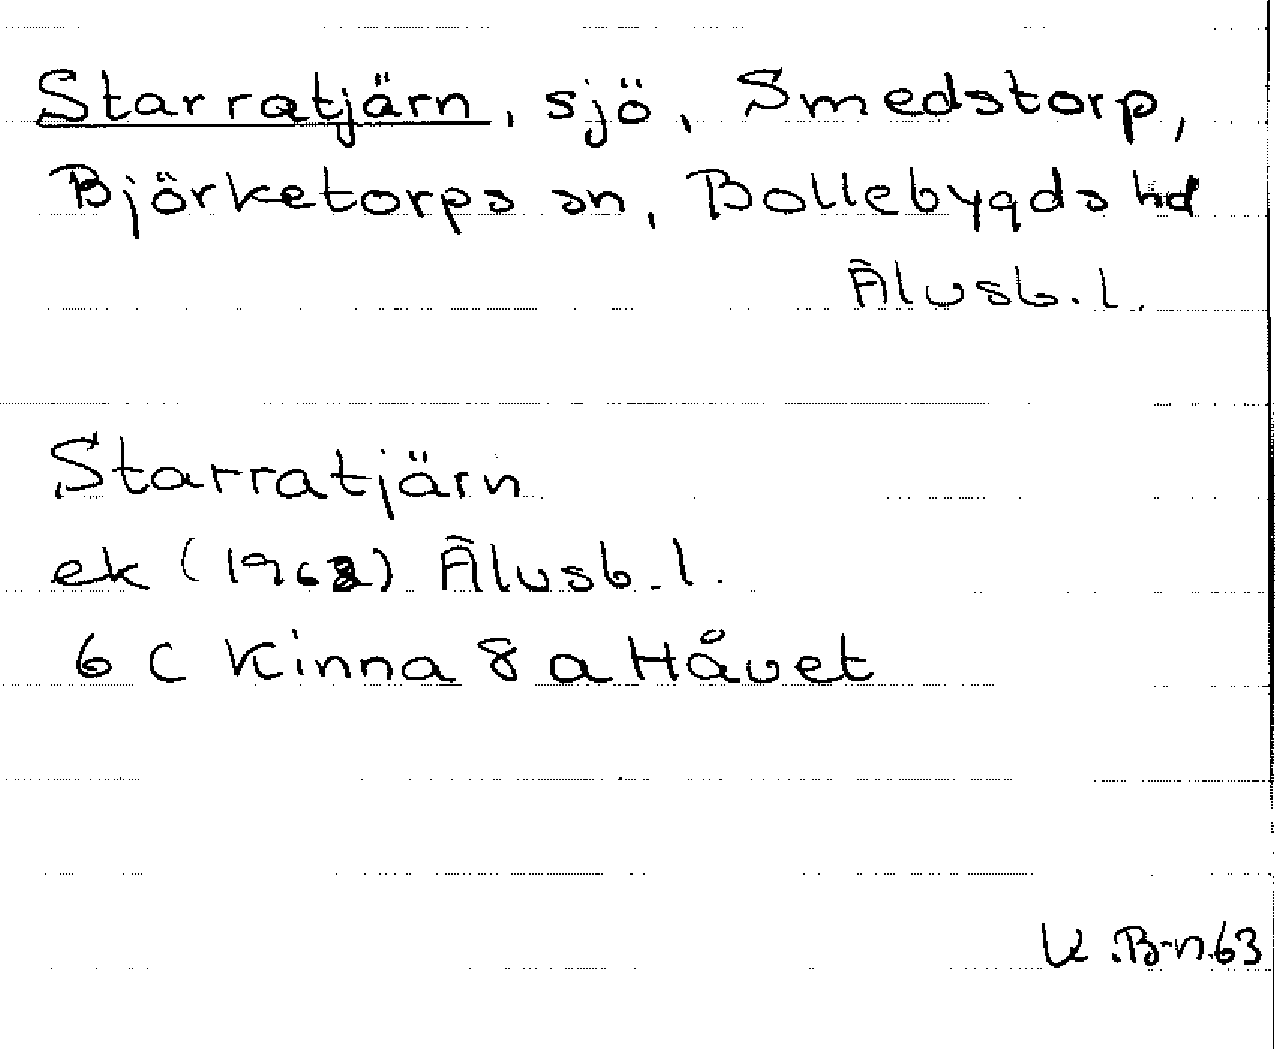 Starratjärn, sjö, Smedstorp,
Björketorps sn, Bollebygds hd
Älvsb. l.
Starratjärn
ek (1962) Älvsb. l.
6 C Kinna 8 a Håvet
K. B-n. 63